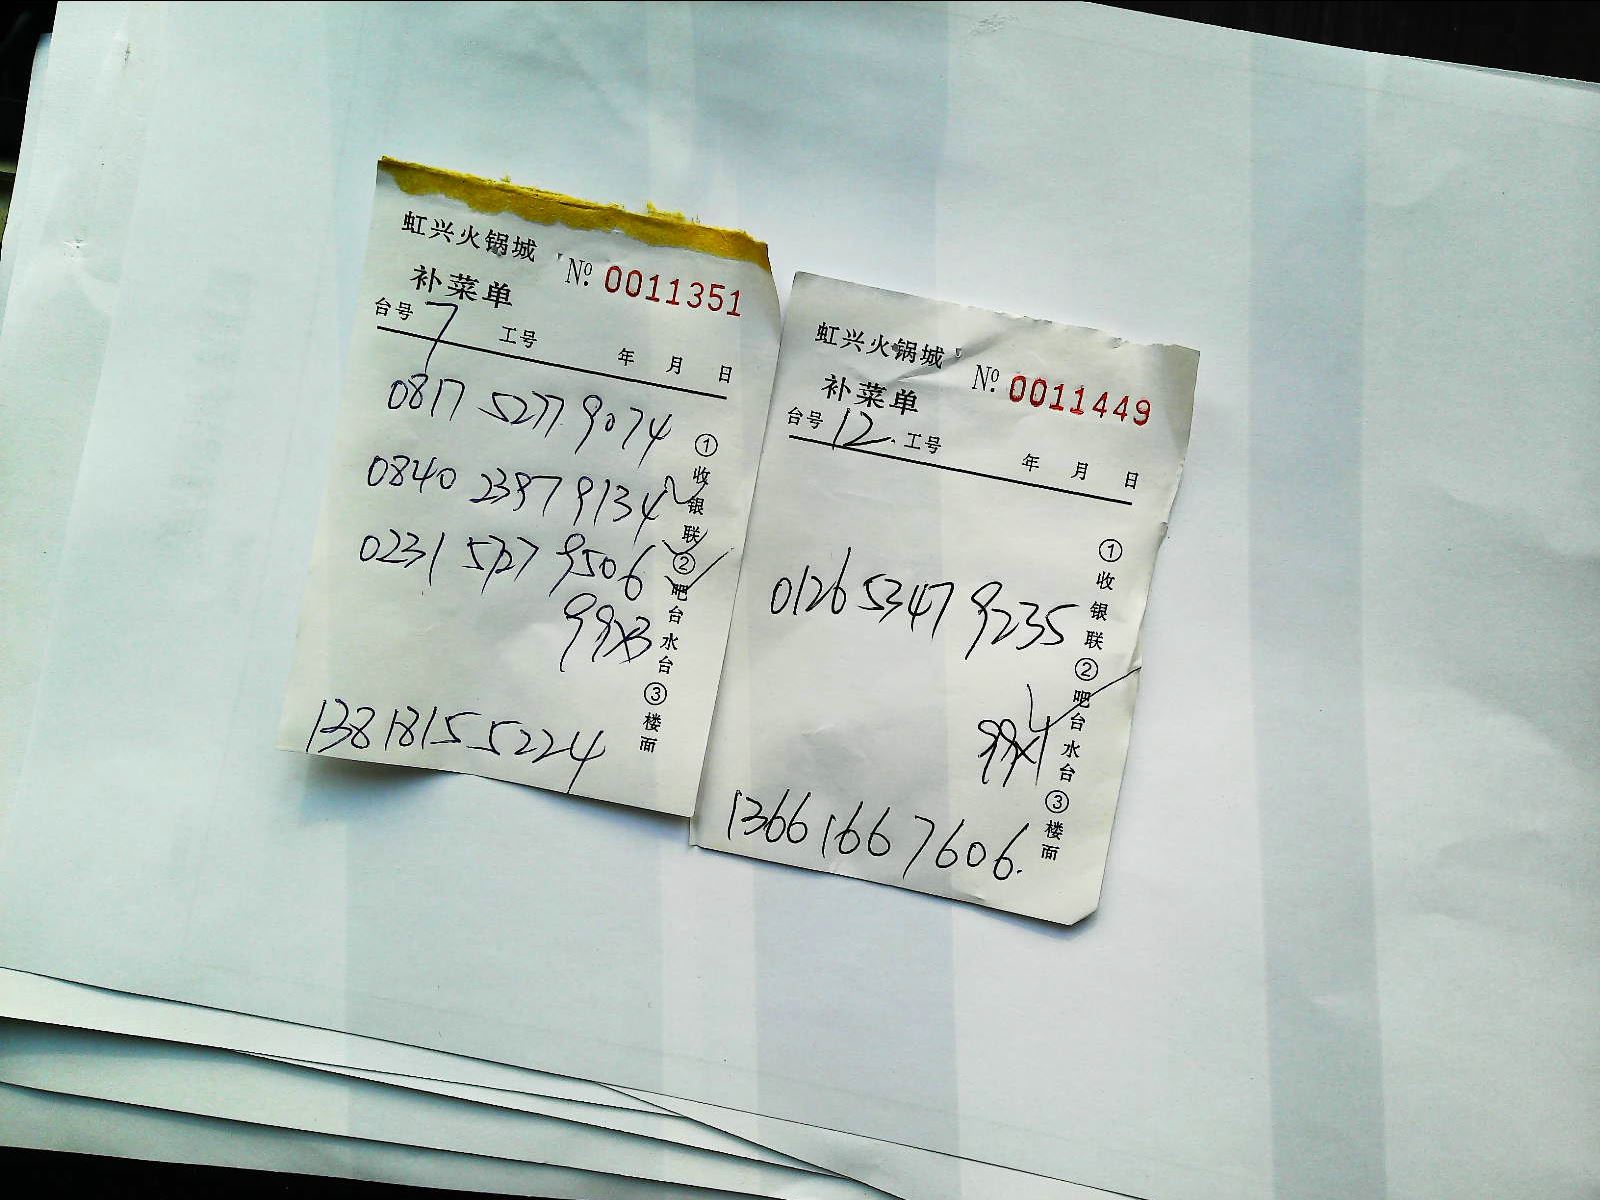 虹兴火锅城 № 0011351
补菜单
台号 7 工号 年 月 日
0817 5277 9074
0840 2397 9134
0231 5727 9506
99x3
13818155224
①收银联②吧台水台③楼面
虹兴火锅城 № 0011449
补菜单
台号 12. 工号 年 月 日
0126 5347 9235
99x1
13661667606.
①收银联②吧台水台③楼面